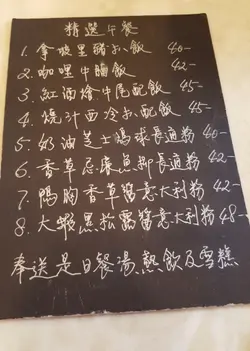 精選午餐
1. 拿坡里豬扒飯 40-
2. 咖哩牛腩飯 42-
3. 紅酒燴牛尾配飯 45-
4. 燒汁西冷扒配飯 45-
5. 奶油芝士腸球長通粉 40-
6. 香草忌廉魚柳長通粉 42-
7. 鴨胸香草醬意大利粉 42-
8. 大蝦黑松露醬意大利粉 48-
奉送是日餐湯、熱飲及雪糕